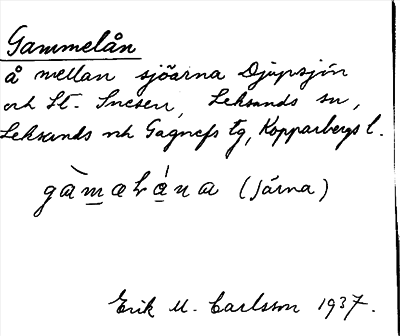 Gammelån
å mellan sjöarna Djupsjön
och St. Snesen, Leksands sn,
Leksands och Gagnefs tg, Kopparbergs l.
(Järna)
Erik M. Carlsson 1937.